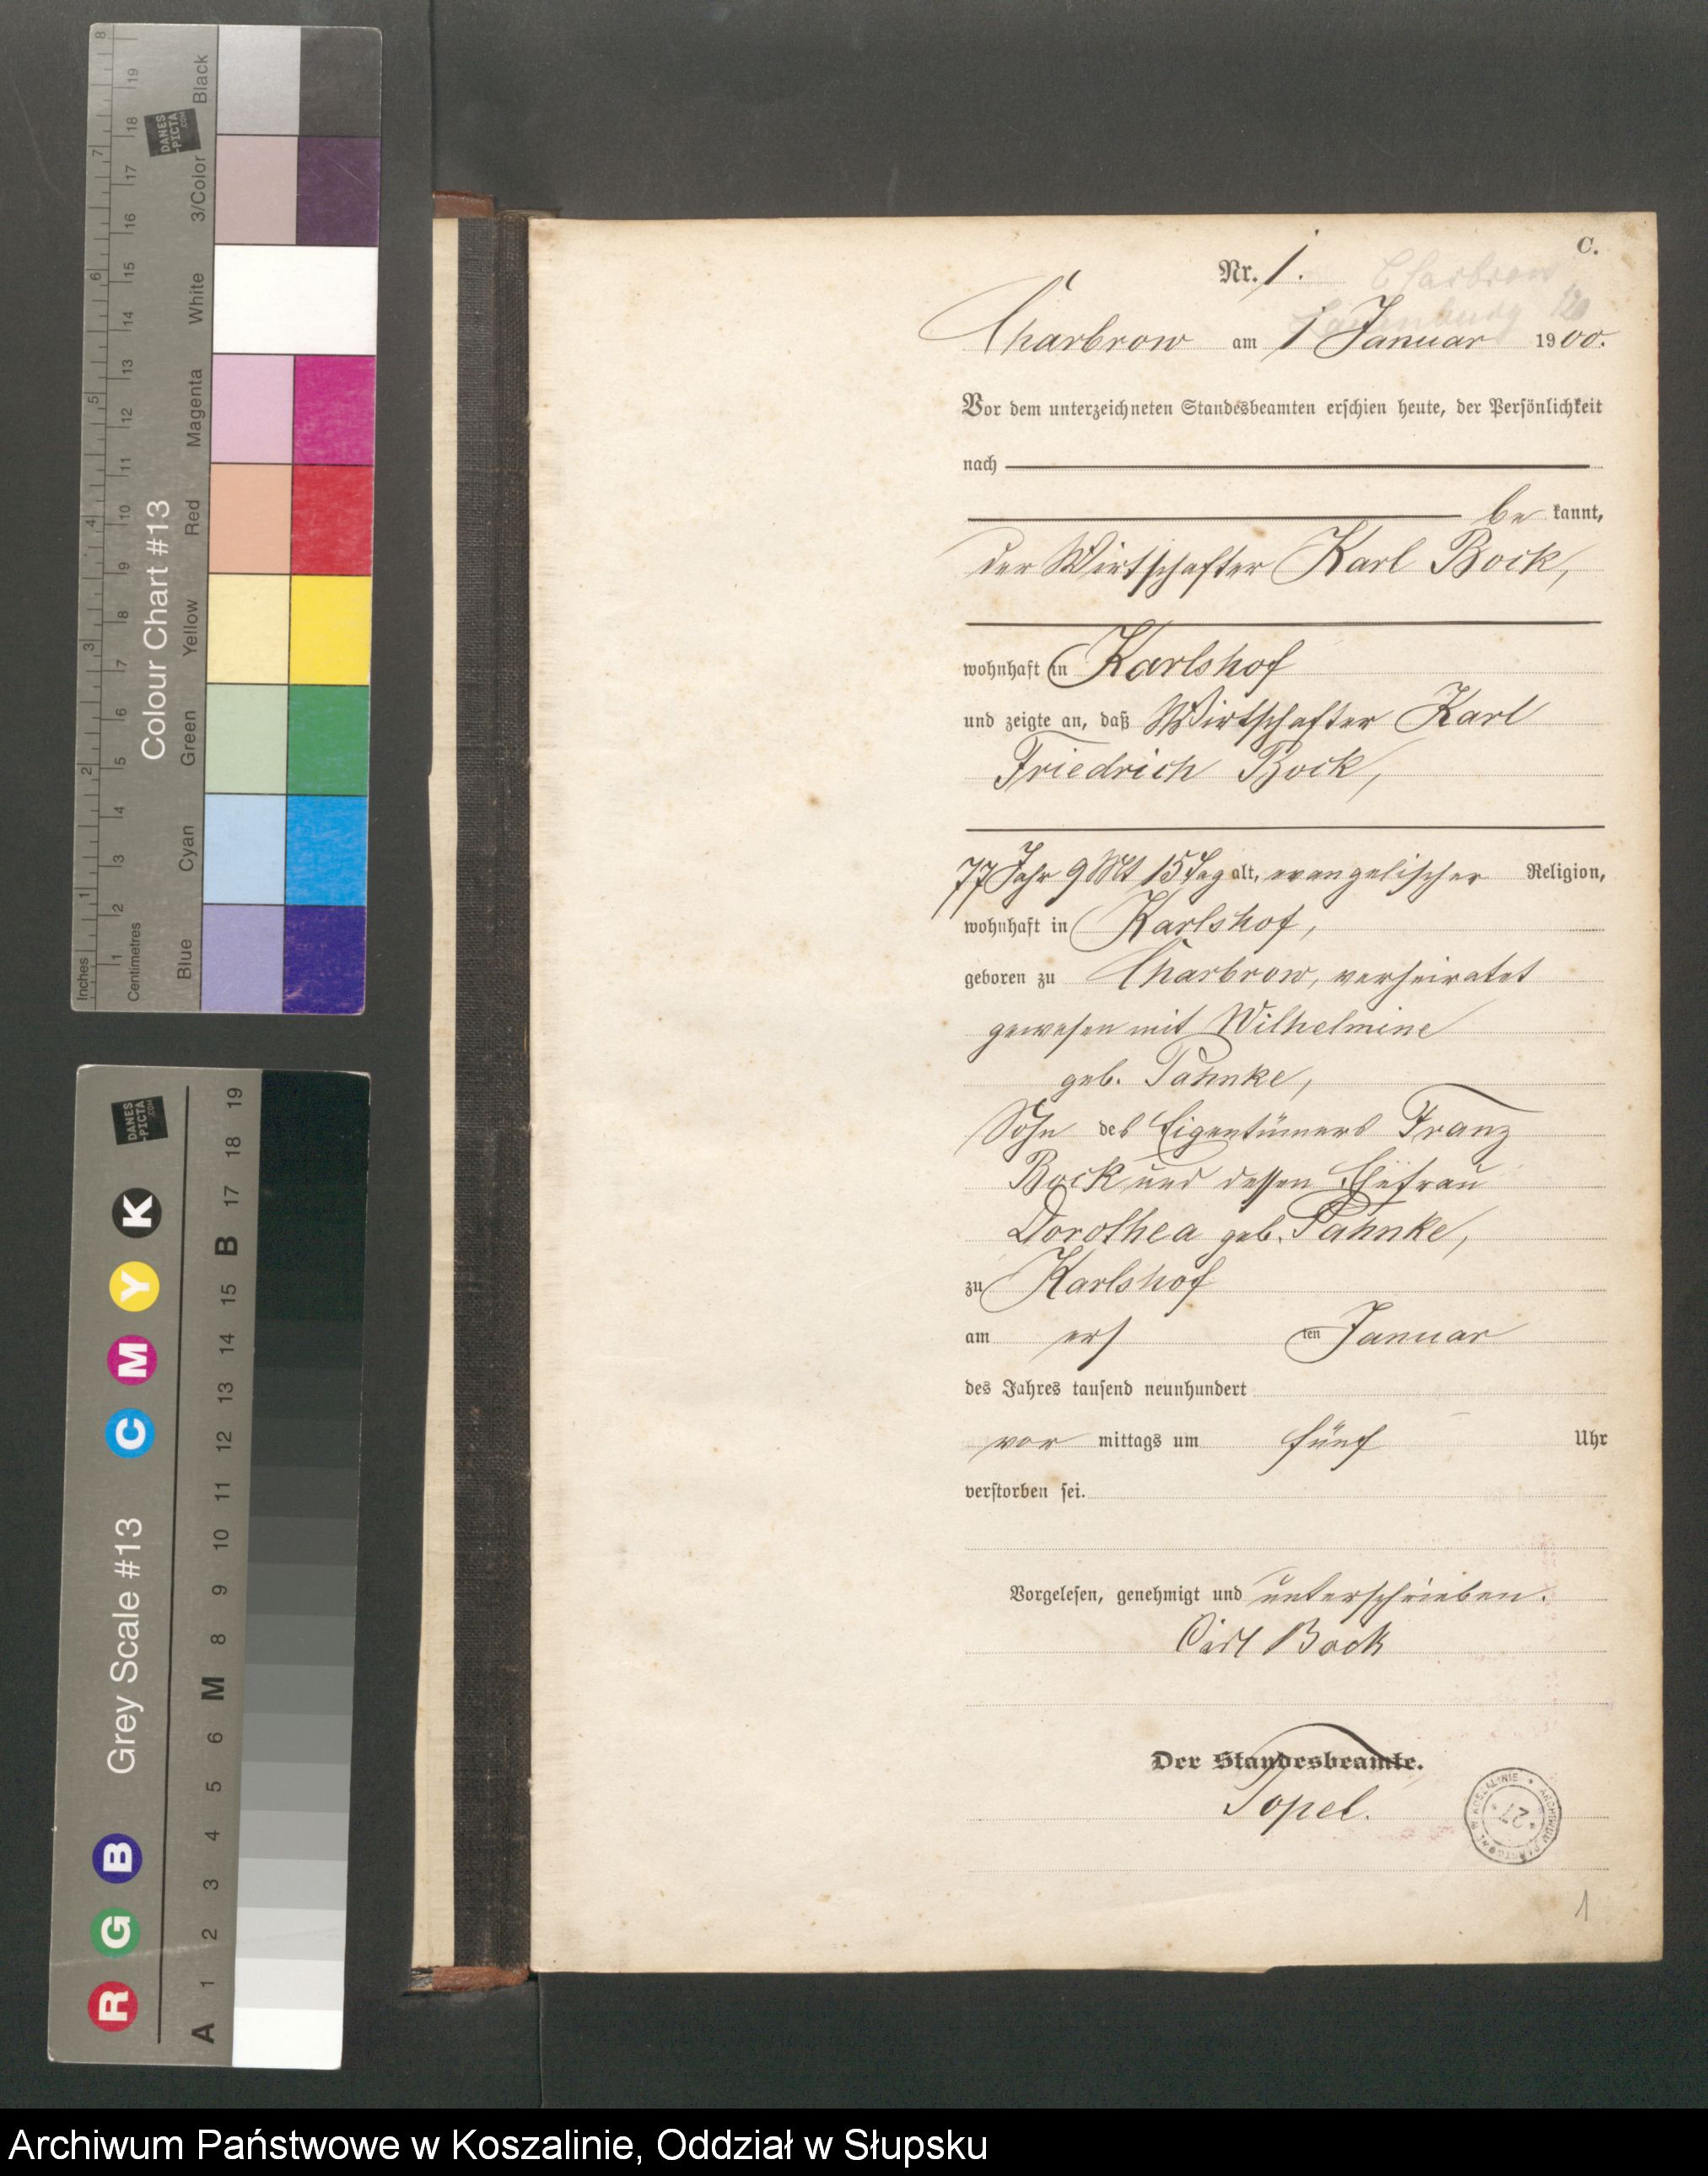 C.
Nr. 1.
Charbrow
Lauenburg
Charbrow am 1 Januar 1900.
Vor dem unterzeichneten Standesbeamten erschien heute, der Persönlichkeit
nach
be kannt,
der Wirtschafter Karl Bock,
wohnhaft in Karlshof
und zeigte an, daß Wirtschafter Karl
Friedrich Bock,
77 Jahr 9 Mt 15 Tag alt, evangelischer Religion,
wohnhaft in Karlshof,
geboren zu Charbrow, verheiratet
gewesen mit Wilhelmine
geb. Pahnke,
Sohn des Eigentümers Franz
Bock und dessen Ehefrau
Dorothea geb. Pahnke,
zu Karlshof
am ers ten Januar
des Jahres tausend neunhundert
vor mittags um fünf Uhr
verstorben sei.
Vorgelesen, genehmigt und unterschrieben.
Carl Bock
Der Standesbeamte.
Topel.
1
Colour Chart #13
Black
3/Color
White
Magenta
Red
Yellow
Green
Cyan
Blue
Inches
1 2 3 4 5 6 7 8
Centimetres
1 2 3 4 5 6 7 8 9 10 11 12 13 14 15 16 17 18 19
DANES
-PICTA
.COM
Grey Scale #13
R G B C M Y K
A 1 2 3 4 5 6 M 8 9 10 11 12 13 14 15 B 17 18 19
DANES
-PICTA
.COM
Archiwum Państwowe w Koszalinie, Oddział w Słupsku